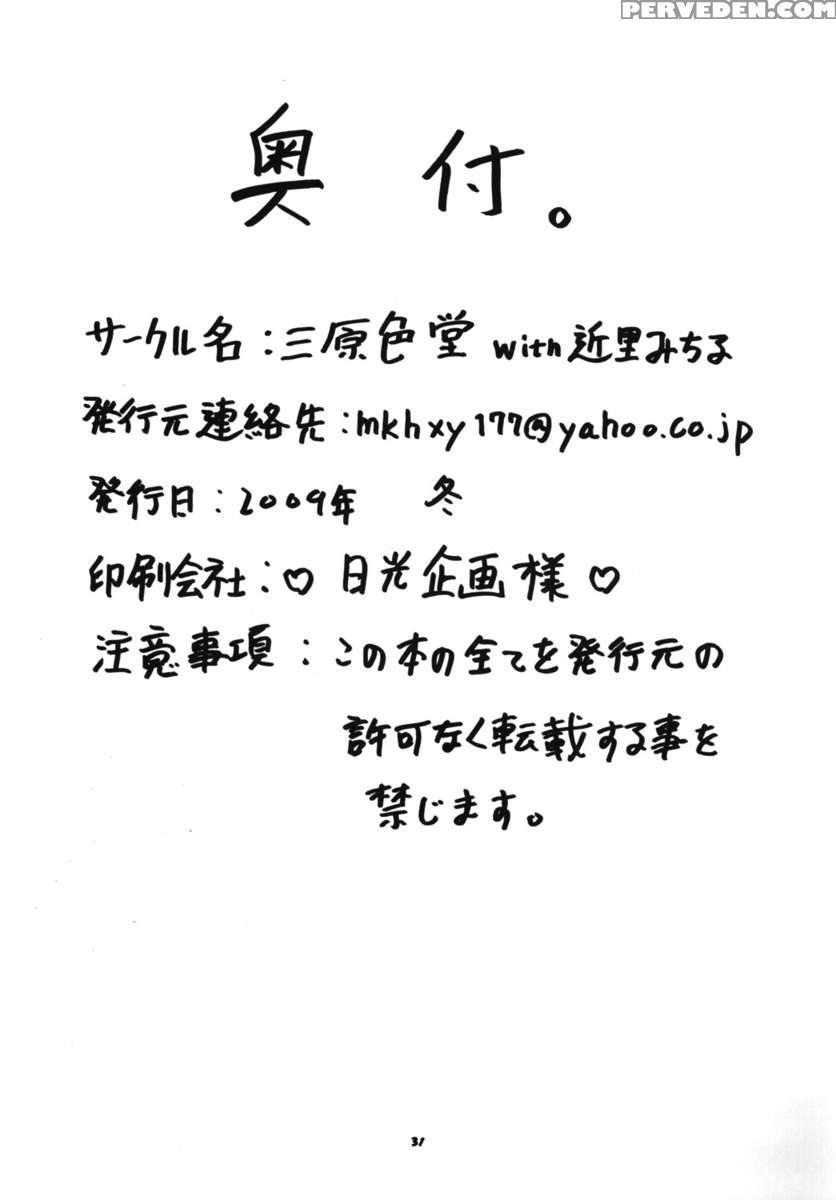 PERVEDEN.COM
奥付。
サークル名：三原色堂 with 近里みちる
発行元連絡先：mkhxy177@yahoo.co.jp
発行日：2009年 冬
印刷会社：♡ 日光企画様 ♡
注意事項：この本の全てを発行元の
許可なく転載する事を
禁じます。
31